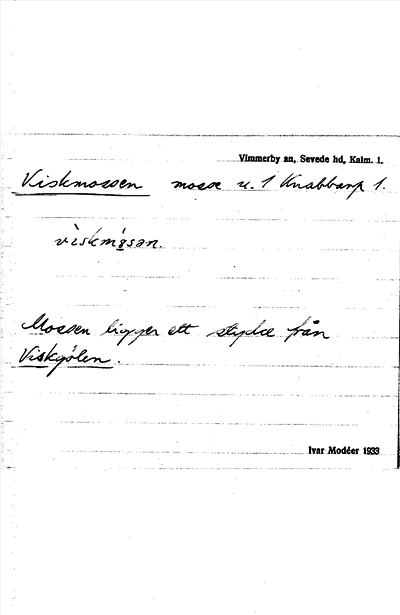 Vimmerby sn, Sevede hd, Kalm. l.
Viskmossen mosse u. 1 Knabbarp 1.
viskmosan.
Mossen ligger ett stycke från
Viskgölen.
Ivar Modéer 1933